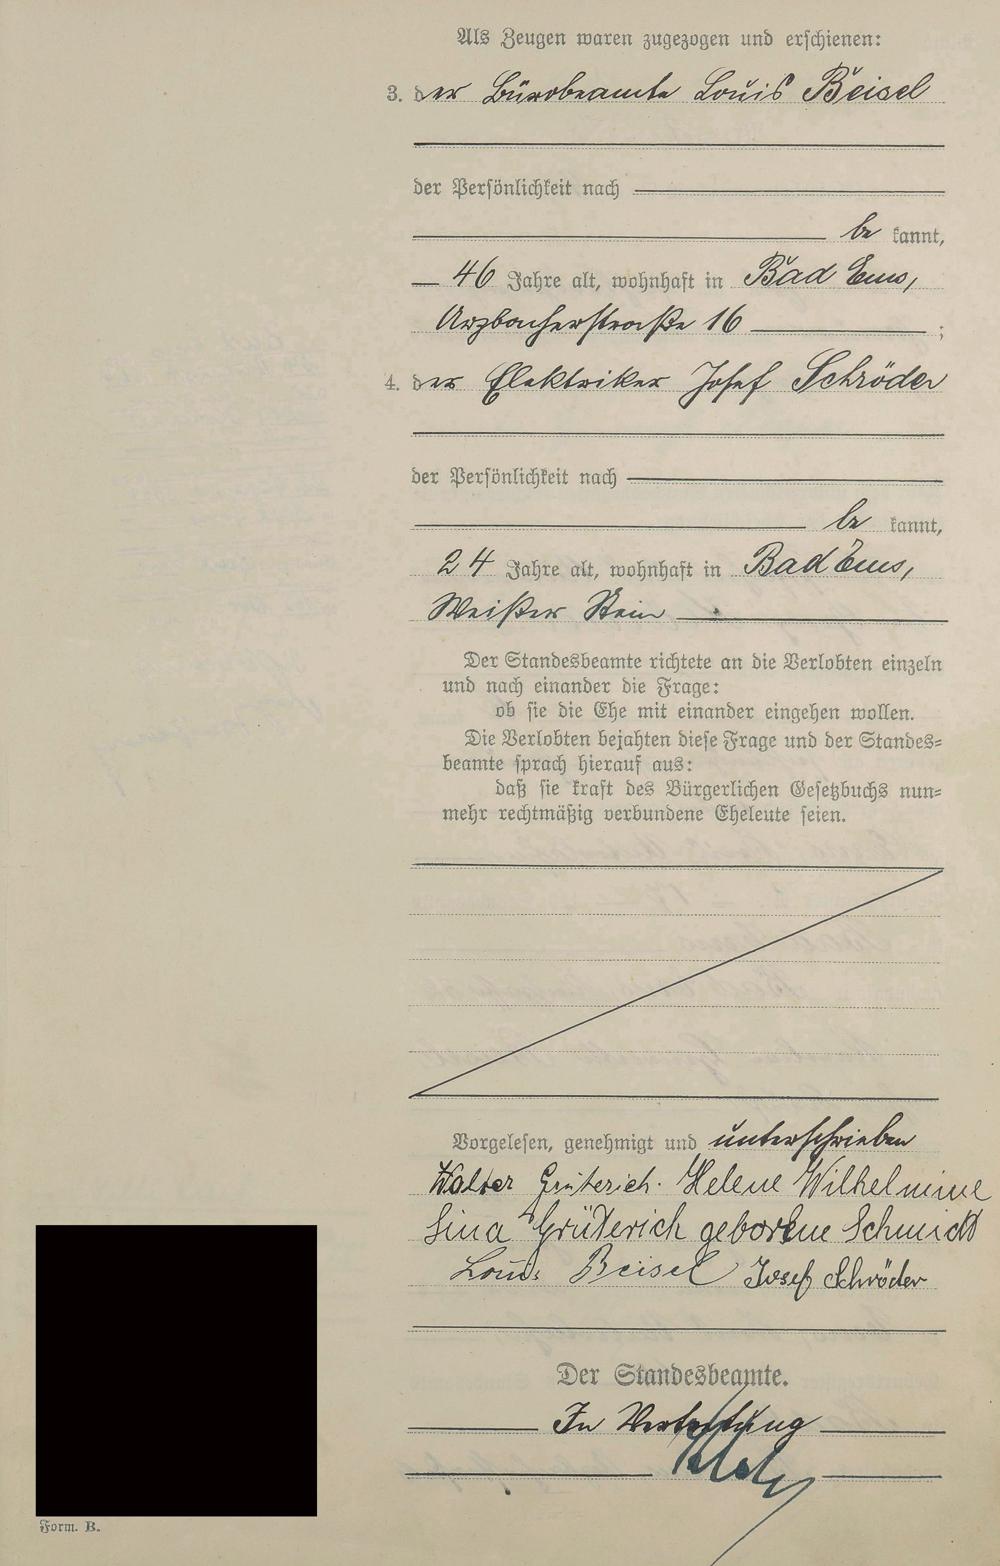 Als Zeugen waren zugezogen und erschienen:
3. der Bürobeamte Louis Beisel
der Persönlichkeit nach
be kannt,
46 Jahre alt, wohnhaft in Bad Ems,
Arzbacherstraße 16 ;
4. der Elektriker Josef Schröder
der Persönlichkeit nach
be kannt,
24 Jahre alt, wohnhaft in Bad Ems,
Weißer Stein .
Der Standesbeamte richtete an die Verlobten einzeln
und nach einander die Frage:
ob sie die Ehe mit einander eingehen wollen.
Die Verlobten bejahten diese Frage und der Standes-
beamte sprach hierauf aus:
daß sie kraft des Bürgerlichen Gesetzbuchs nun-
mehr rechtmäßig verbundene Eheleute seien.
Vorgelesen, genehmigt und unterschrieben
Walter Grüterich. Helene Wilhelmine
Lina Grüterich geborene Schmidt
Louis Beisel Josef Schröder
Der Standesbeamte.
In Vertretung
Form. B.